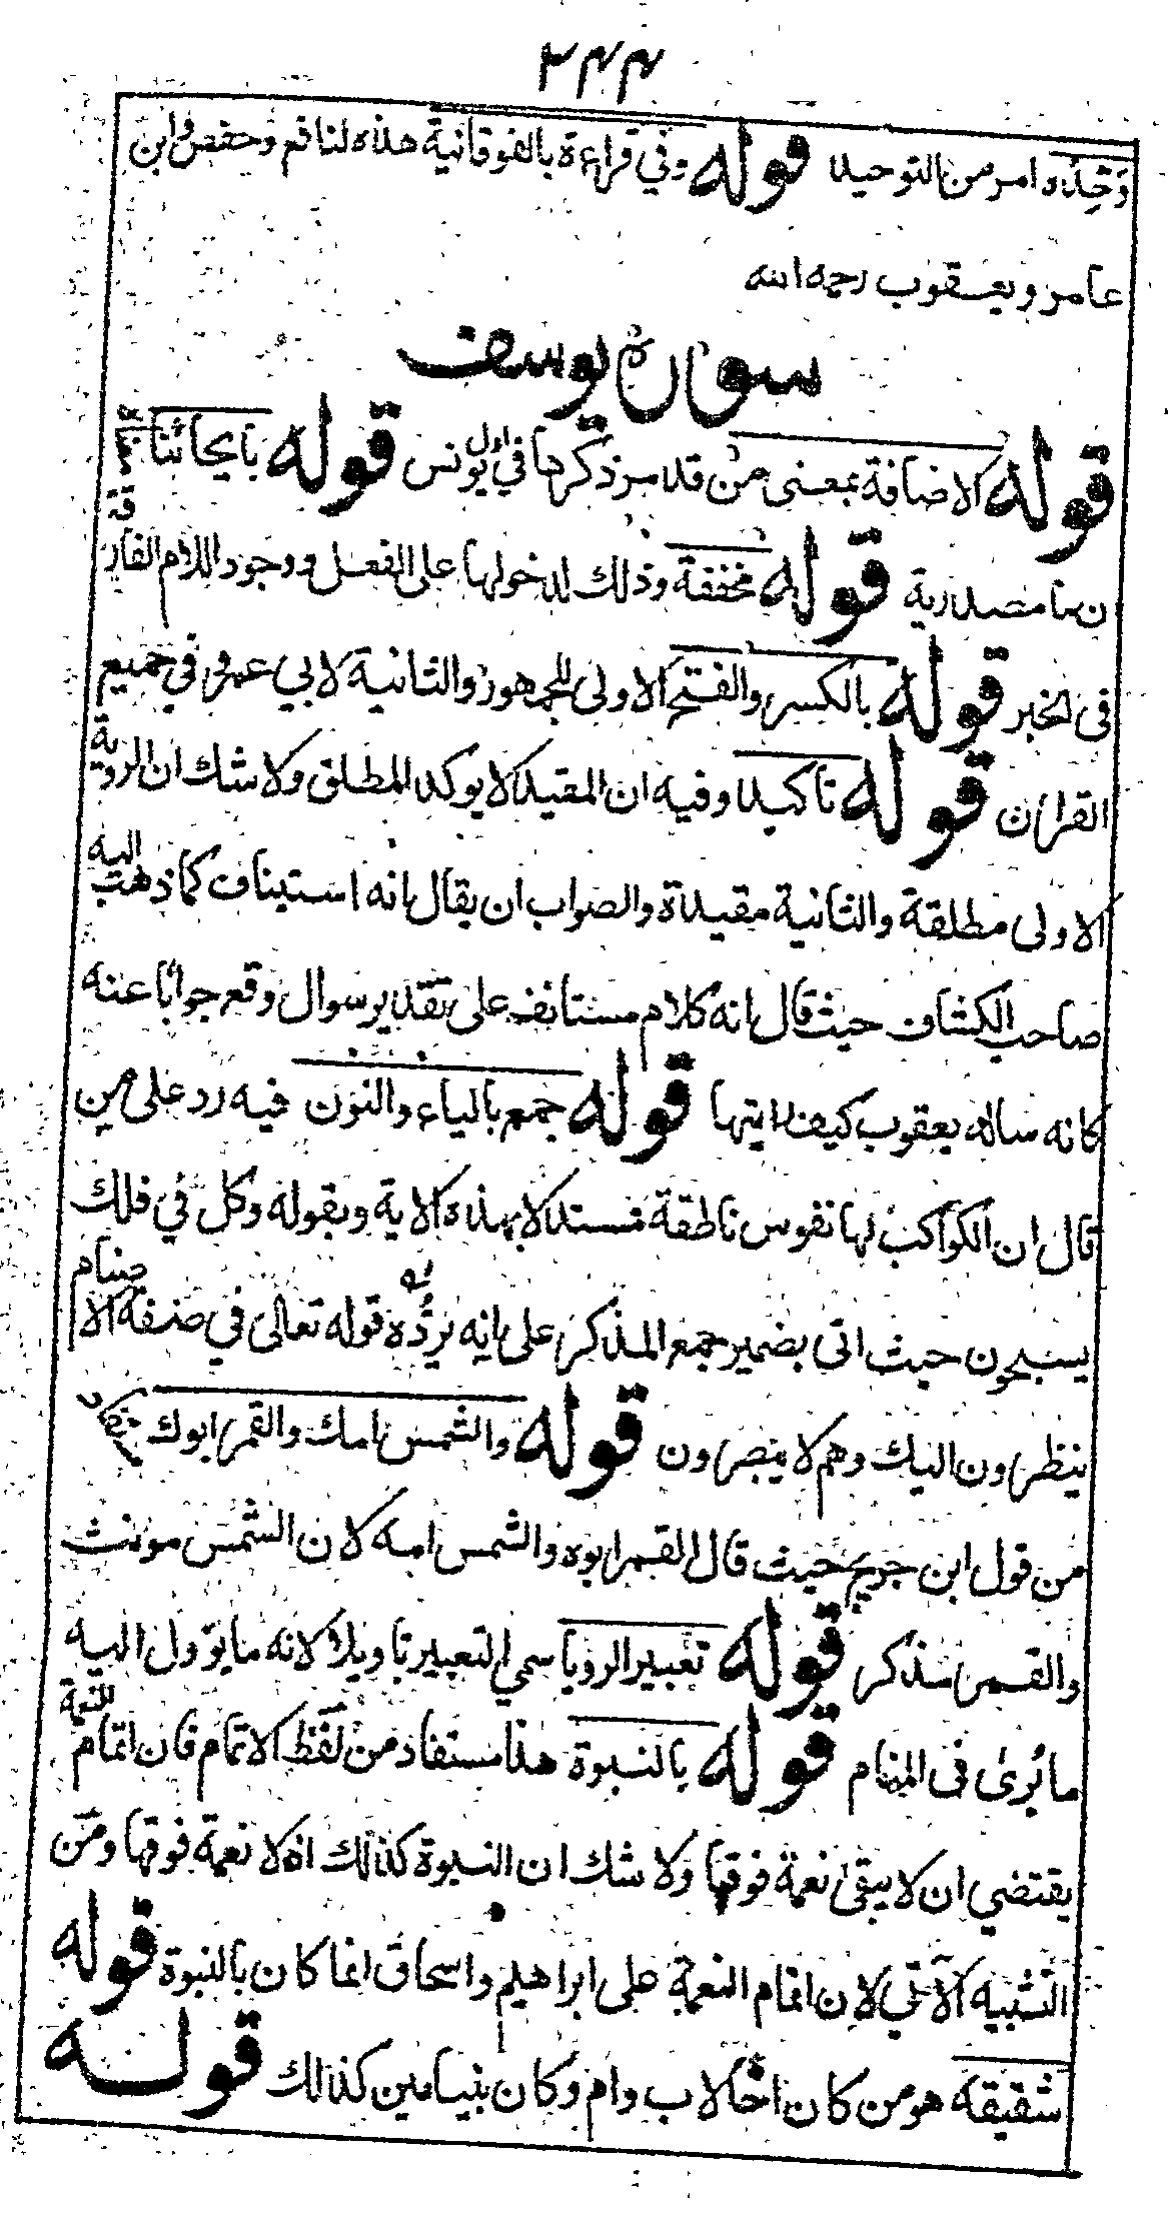 ٣٤٤
وَحِّدْه امر من التوحيد قوله وفي قراءة بالفوقانية هذه لنافع وحفص وابن
عامر ويعقوب رحمه الله
سورة يوسف
قوله الاضافة بمعنى من قد مر ذكرها في اول يونس قوله بايحائنا
ن ما مصدرية قوله مخففة وذلك لدخولها على الفعل ووجود اللام الفارقة
فى الخبر قوله بالكسر والفتح الاولى للجمهور والثانية لابي عمرو في جميع
القران قوله تاكيد وفيه ان المقيد لا يوكد المطلق ولا شك ان الروية
الاولى مطلقة والثانية مقيدة والصواب ان يقال انه استيناف كما ذهب اليه
صاحب الكشاف حيث قال انه كلام مستانف على تقدير سوال وقع جوابا عنه
كانه ساله يعقوب كيف رايتها قوله جمع بالياء والنون فيه رد على من
قال ان الكواكب لها نفوس ناطقة مستدلا بهذه الاية وبقوله وكل في فلك
يسبحون حيث اتى بضمير جمع المذكر على انه يردُّه قوله تعالى في صفة الاصنام
ينظرون اليك وهم لا يبصرون قوله والشمس امك والقمر ابوك
من قول ابن جريج حيث قال القمر ابوه والشمس امه لان الشمس مونث
والقمر مذكر قوله تعبير الرويا سمي التعبير تاويلا لانه ما يوول اليه
ما يُرىٰ فى المنام قوله بالنبوة هذا مستفاد من لفظ الاتمام فان اتمام النعمة
يقتضي ان لا يبقىٰ نعمة فوقها ولا شك ان النبوة كذلك اذ لا نعمة فوقها ومن
التشبيه الآتي لان اتمام النعمة على ابراهيم واسحاق انما كان بالنبوة قوله
شقيقه هو من كان اخا لاب وام وكان بنيامين كذلك قوله